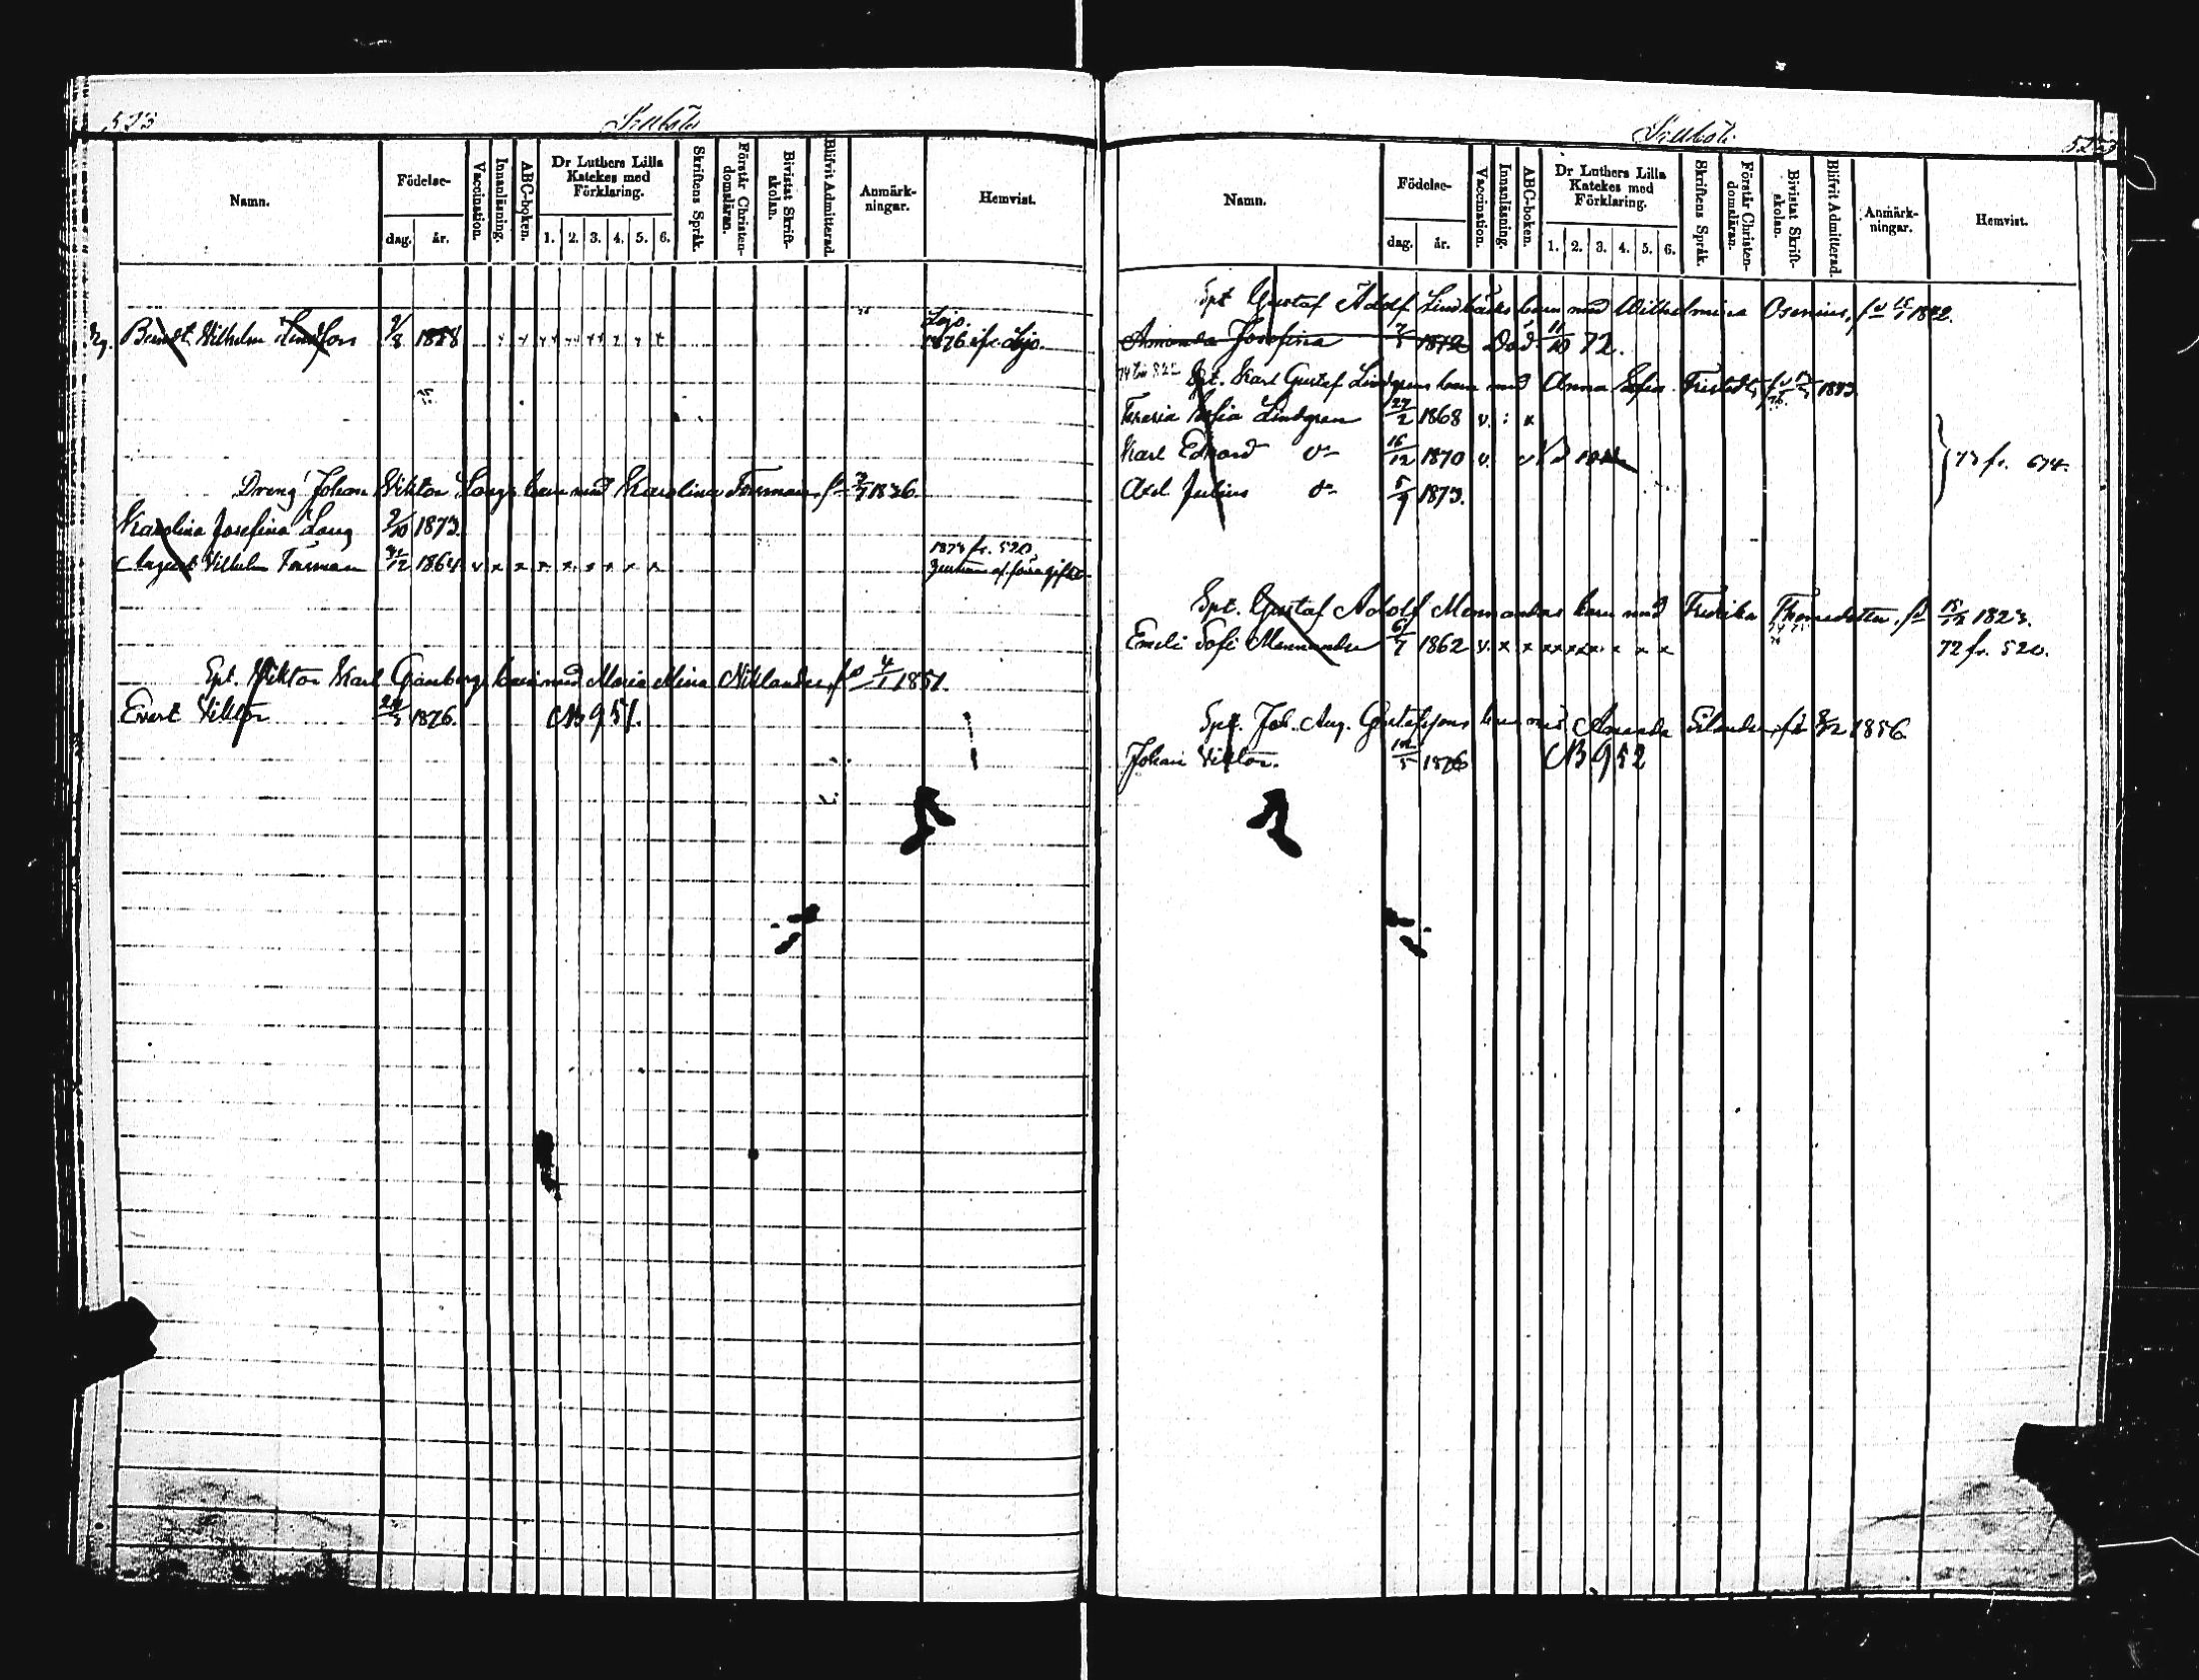 523
Namn. Födelse- dag. år. Vaccination. Innanläsning. ABC-boken. Dr Luthers Lilla Katekes med Förklaring. 1. 2. 3. 4. 5. 6. Skriftens Språk. Förstår Christen-domsläran. Bivistat Skrift-skolan. Blifvit Admitterad. Anmärk-ningar. Hemvist.
Lojo.
Berndt Wilhelm Lindfors 9/8 1858 1876 ifr. Lojo.
Dreng Johan Viktor Langs barn med Karolina Forsman, f 1836.
Karolina Josefina Lang 9/10 1873.
1873 fr. 520,
August Vilhelm Forsman 1864 v x x x x x x x x
Spt. Viktor Karl Granbergs barn med Maria Mina Niklander, f 4/1 1851.
Evert Viktor 1876. NB 951.
523
Namn. Födelse- dag. år. Vaccination. Innanläsning. ABC-boken. Dr Luthers Lilla Katekes med Förklaring. 1. 2. 3. 4. 5. 6. Skriftens Språk. Förstår Christen-domsläran. Bivistat Skrift-skolan. Blifvit Admitterad. Anmärk-ningar. Hemvist.
Spt Gustaf Adolf Lindbäcks barn med Wilhelmina Osenius, 1842.
Amanda Josefina 1872 Död 11/10 72.
Spt. Karl Gustaf Lindgrens barn med Anna Sofia
Sofia Lindgren 27/2 1868 v. : x
Karl Edvard 16/12 1870 v. 73 fr. 674.
Axel Julius 5/9 1873.
Spt. Gustaf Adolf Mennanders barn med Fredrika Thomedotter. 1823.
Emeli Sofi Mennander 6/7 1862 v. x x x x x x x x x 72 fr. 520.
Spt. Joh. Aug. Gustafssons barn med Amanda 1856.
Johan Viktor. 1876 NB 952